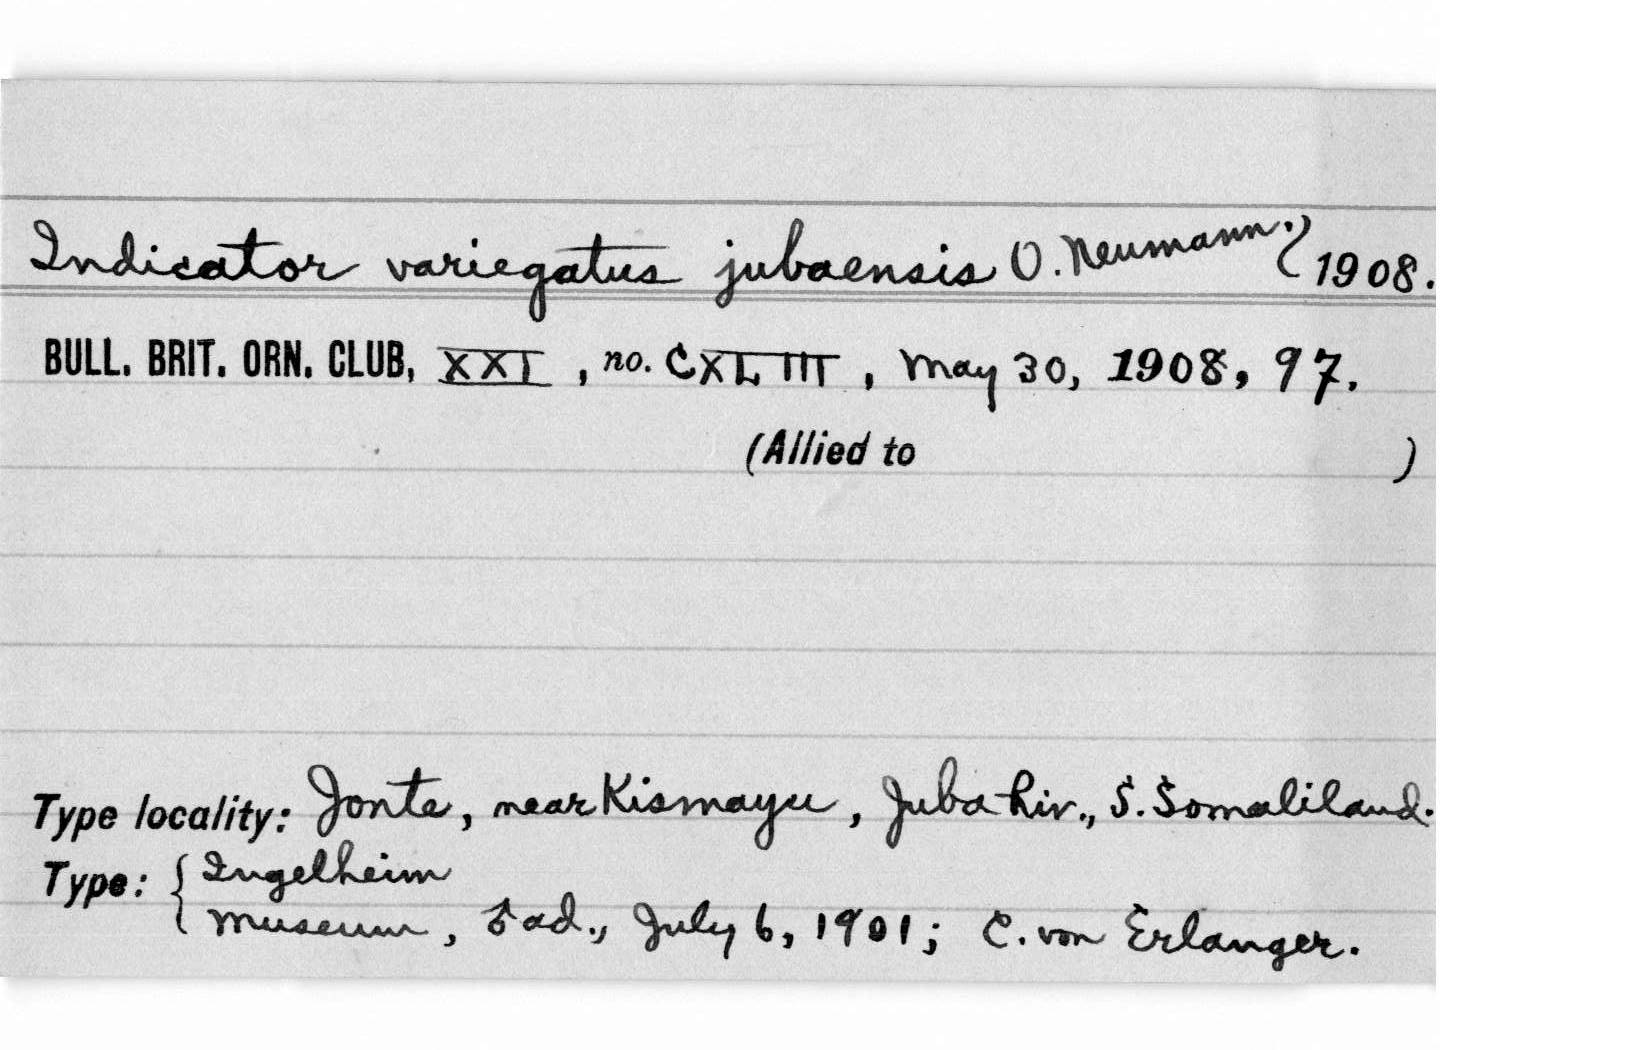 Indicator variegatus jubaensis O. Neumann. 1908.
BULL. BRIT. ORN. CLUB, XXI, no. CXLIII, May 30, 1908, 97.
(Allied to )
Type locality: Jonte, near Kismayu, Juba Riv., S. Somaliland.
Type: { Ingelheim
Museum, ♂ ad., July 6, 1901; C. von Erlanger.